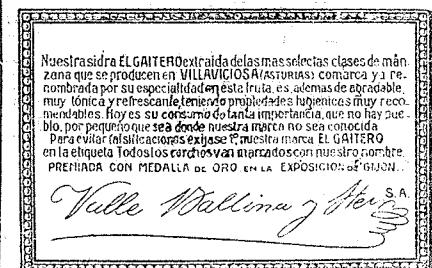 Nuestra sidra EL GAITERO extraida de las mas selectas clases de man-
zana que se producen en VILLAVICIOSA (ASTURIAS) comarca ya re-
nombrada por su especialidad en esta fruta, es, ademas de agradable,
muy tónica y refrescante, teniendo propiedades higienicas muy reco-
mendables. Hoy es su consumo de tanta importancia, que no hay pue-
blo, por pequeño que sea donde nuestra marca no sea conocida
Para evitar falsificaciones exijase nuestra marca EL GAITERO
en la etiqueta Todos los corchos van marcados con nuestro nombre.
PREMIADA CON MEDALLA DE ORO EN LA EXPOSICION DE GIJON.
Valle Ballina y Fer S.A.